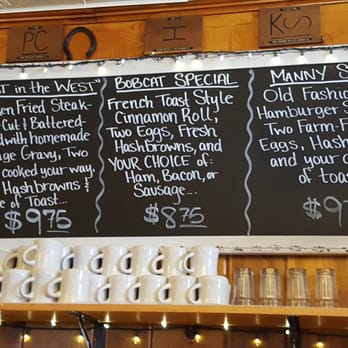 PC
H
KS
ST in the WEST"
Fried Steak-
Cut & Battered-
with homemade
Gravy, Two
cooked your way,
Hashbrowns &
of Toast...
$9.75
BOBCAT SPECIAL
French Toast Style
Cinnamon Roll,
Two Eggs, Fresh
Hashbrowns, and
YOUR CHOICE of:
Ham, Bacon, or
Sausage...
$8.75
MANNY S
Old Fashion
Hamburger S
Two Farm-F
Eggs, Hash
and your c
of toas
$9